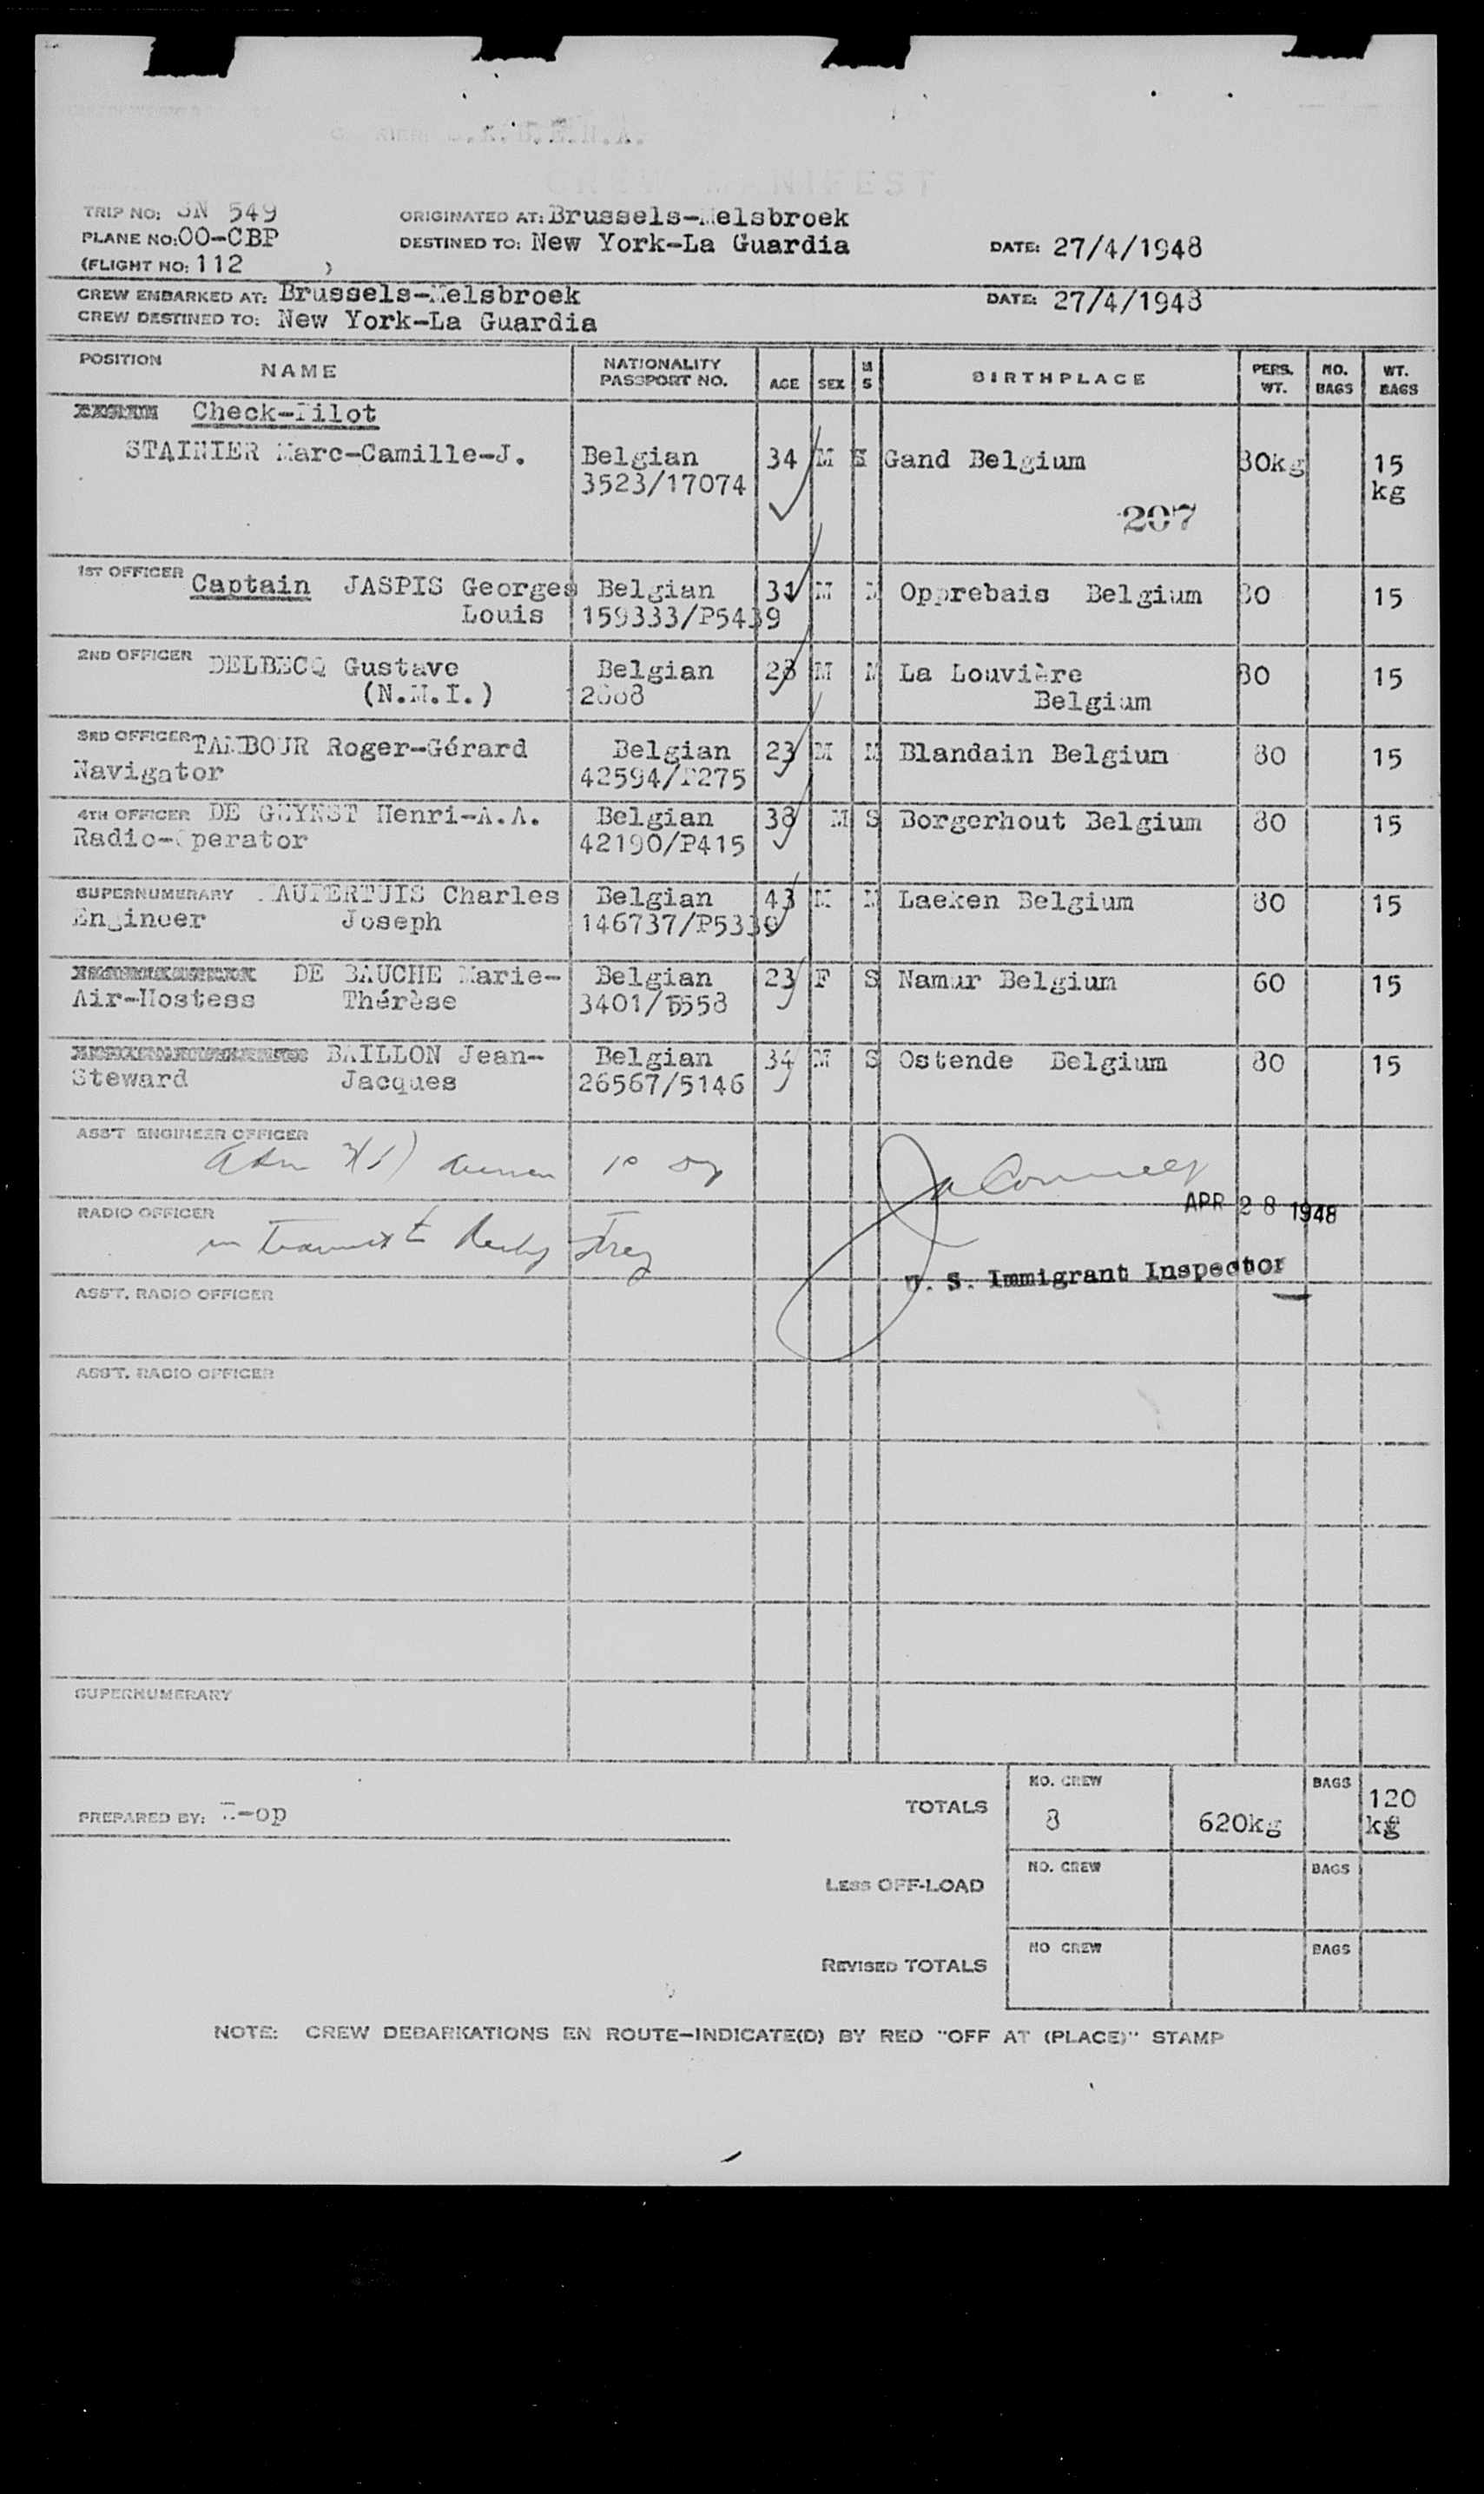 S.A.B.E.N.A.
CREW MANIFEST
TRIP NO: SN 549 ORIGINATED AT: Brussels-Melsbroek
PLANE NO: OO-CBP DESTINED TO: New York-La Guardia DATE: 27/4/1948
(FLIGHT NO: 112 )
CREW EMBARKED AT: Brussels-Melsbroek DATE: 27/4/1948
CREW DESTINED TO: New York-La Guardia
POSITION NAME NATIONALITY PASSPORT NO. AGE SEX M S BIRTHPLACE PERS. WT. NO. BAGS WT. BAGS
Check-Pilot
STAINIER Marc-Camille-J. Belgian 34 M Gand Belgium 80kg 15
3523/17074 kg
207
1ST OFFICER Captain JASPIS Georges Belgian 31 M M Opprebais Belgium 80 15
Louis 159333/P5439
2ND OFFICER DELBECQ Gustave Belgian 28 M M La Louvière 80 15
(N.M.I.) Belgium
3RD OFFICER TAMBOUR Roger-Gérard Belgian 23 M M Blandain Belgium 80 15
Navigator 42594/P275
4TH OFFICER DE Henri-A.A. Belgian 38 M S Borgerhout Belgium 80 15
Radio-Operator 42190/P415
SUPERNUMERARY MAUPERTUIS Charles Belgian 43 M M Laeken Belgium 80 15
Engineer Joseph 146737/P5339
DE BAUCHE Marie- Belgian 23 F S Namur Belgium 60 15
Air-Hostess Thérèse 3401/5558
BAILLON Jean- Belgian 34 M S Ostende Belgium 80 15
Steward Jacques 26567/5146
ASS'T ENGINEER OFFICER
APR 28 1948
RADIO OFFICER
in transit
U. S. Immigrant Inspector
ASS'T. RADIO OFFICER
ASS'T. RADIO OFFICER
SUPERNUMERARY
PREPARED BY: -op TOTALS NO. CREW 8 620kg BAGS 120 kg
LESS OFF-LOAD NO. CREW BAGS
REVISED TOTALS NO CREW BAGS
NOTE: CREW DEBARKATIONS EN ROUTE-INDICATE(D) BY RED "OFF AT (PLACE)" STAMP